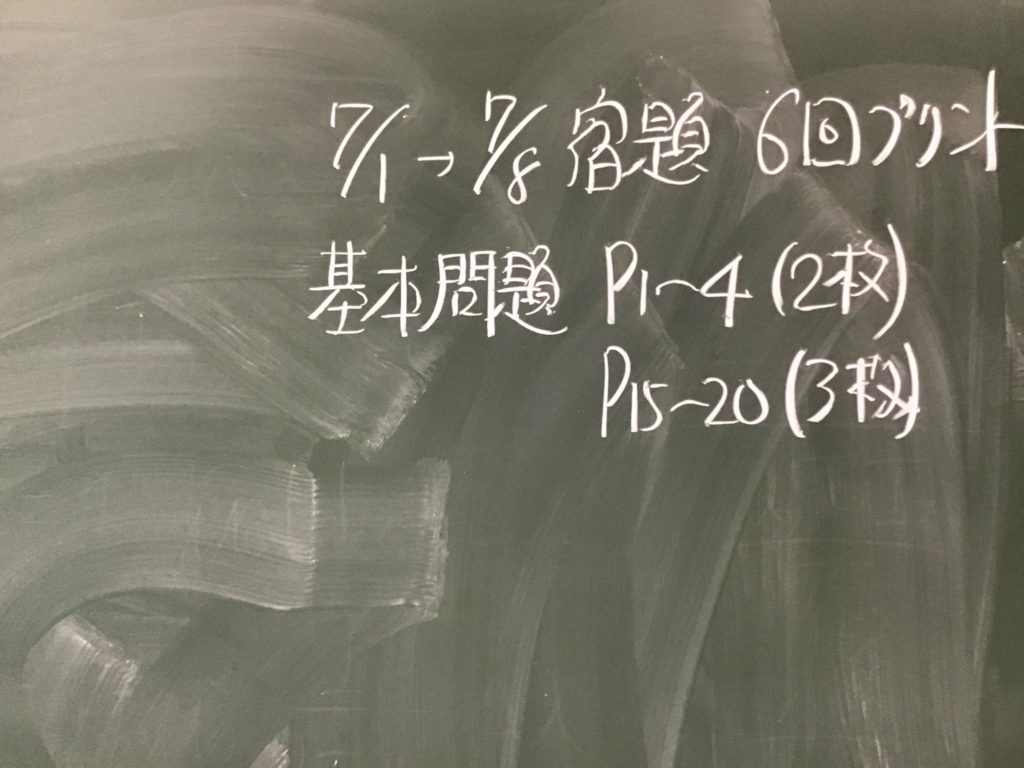 7/1→7/8 宿題 6回プリント
基本問題 P1~4(2枚)
P15~20(3枚)